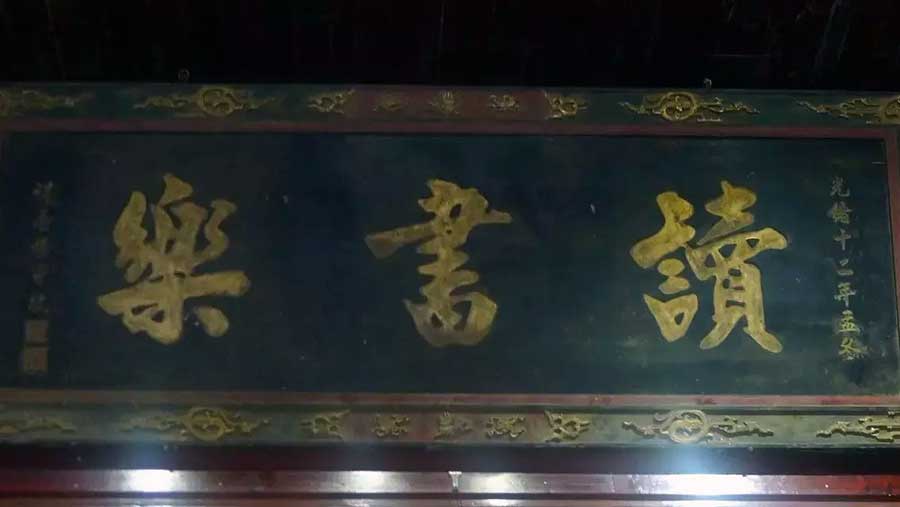 光緒十二年孟冬
讀書樂